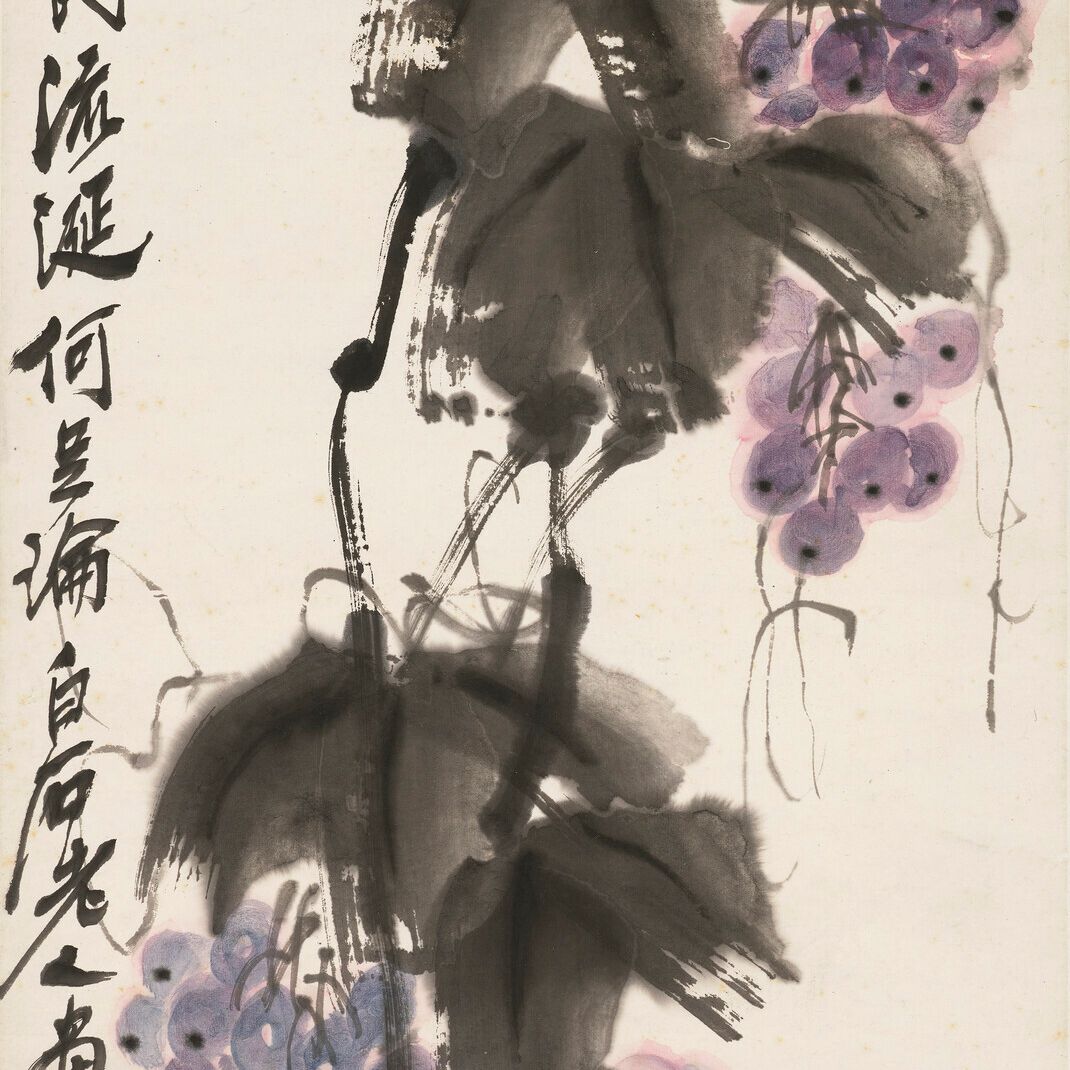 流涎何足論白石老人